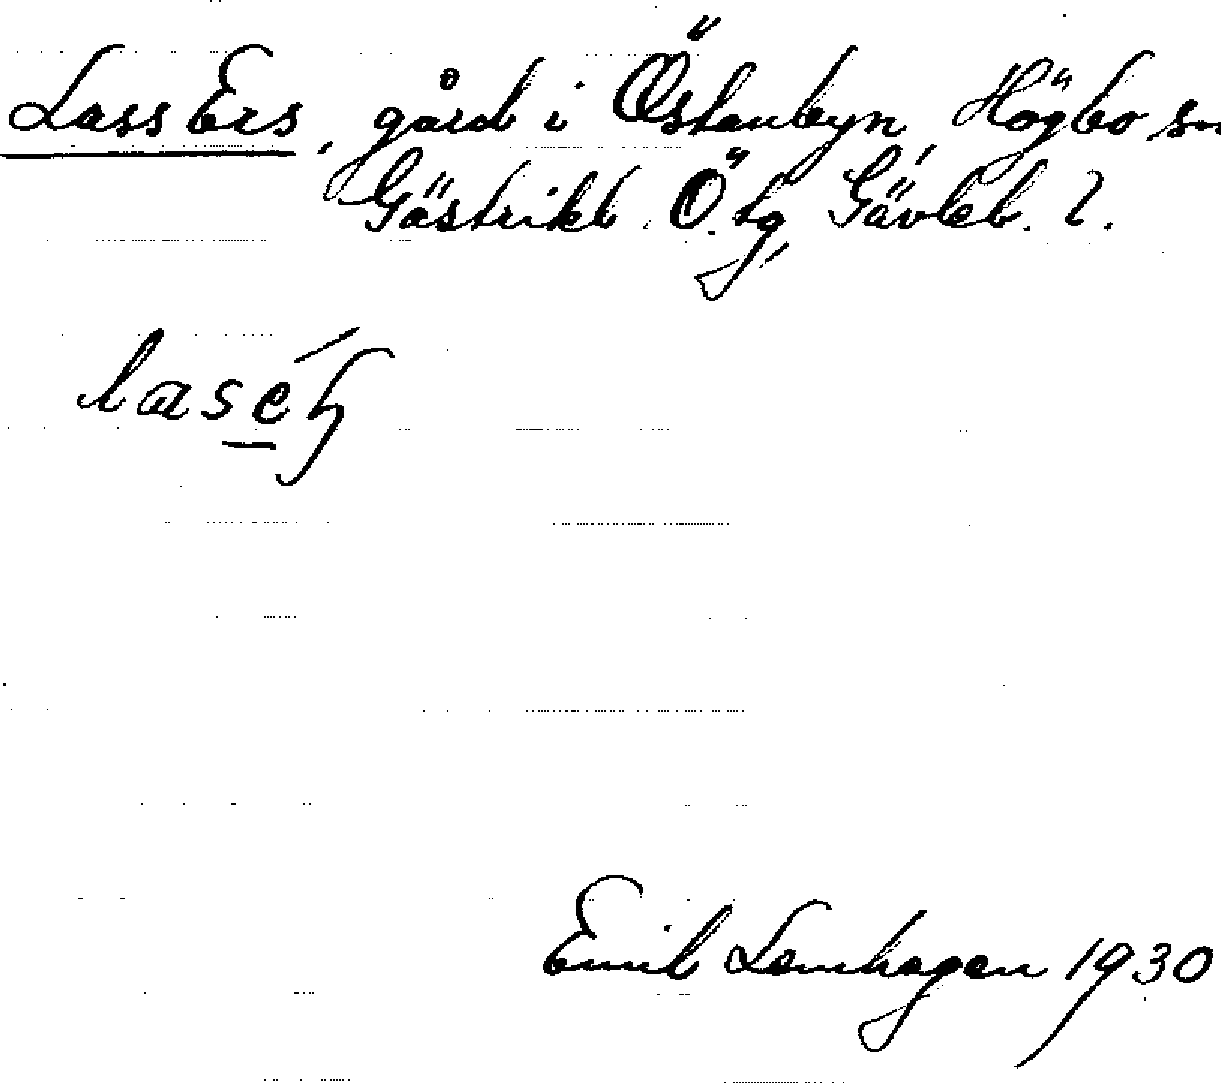 Lass Ers, gård i Östanbyn, Högbo sn
Gästrikl. Ö. tg, Gävleb. l.
Emil Lemhagen 1930